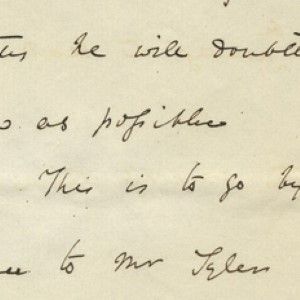 he will doubt
as possible
This is to go by
to Mr Tylers